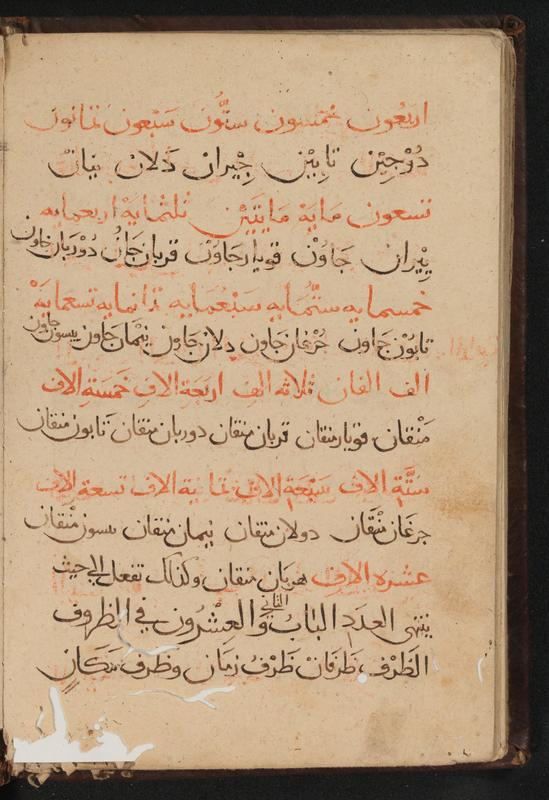 اربعون خمسون ستّون سبعون ثمانون
دُوْجِيْن تابِيْن جِيران دَلان نيان
تسعون مايَة مايتَيْن ثلثمايه اربعمايه
يِيْران جَاوُنْ قويارجَاوَنْ قربان جَاوُنْ دُوْربان جاون
خمسمايه ستّمايه سبْعمايه ثمانمايه تسعمايَهْ
تابون جَاون جُرْغان جَاون دلان جَاون نيْمان جَاون يسون جاون
الف الفان ثلاثه الف اربَعَة الاف خَمسَة الاف
مَنْقان قويارمنقان قربان منقان دوربان منقان تابون منقان
ستَّة الاف سَبْعَة الاف ثمانية الاف تسعة الاف
جرغان منْقان دولان منقان نيمان منقان يسون منْقان
عشرة الاف هربان منقان وكذلك تفعل الى حيث
ينتهى العدد البَاب الثانى والعِشْرُون في الظروف
الظَرْف ظَرفَانْ ظَرْفُ زمَان وظَرف مَكان